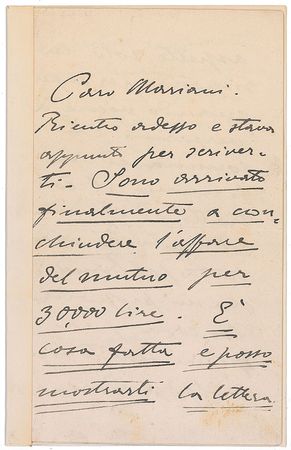 Caro Mariani.
Rientro adesso e stavo
appunto per scriver-
ti - Sono arrivato
finalmente a con-
chiudere l'affare
del mutuo per
30,000 lire. È
cosa fatta e posso
mostrarti la lettera